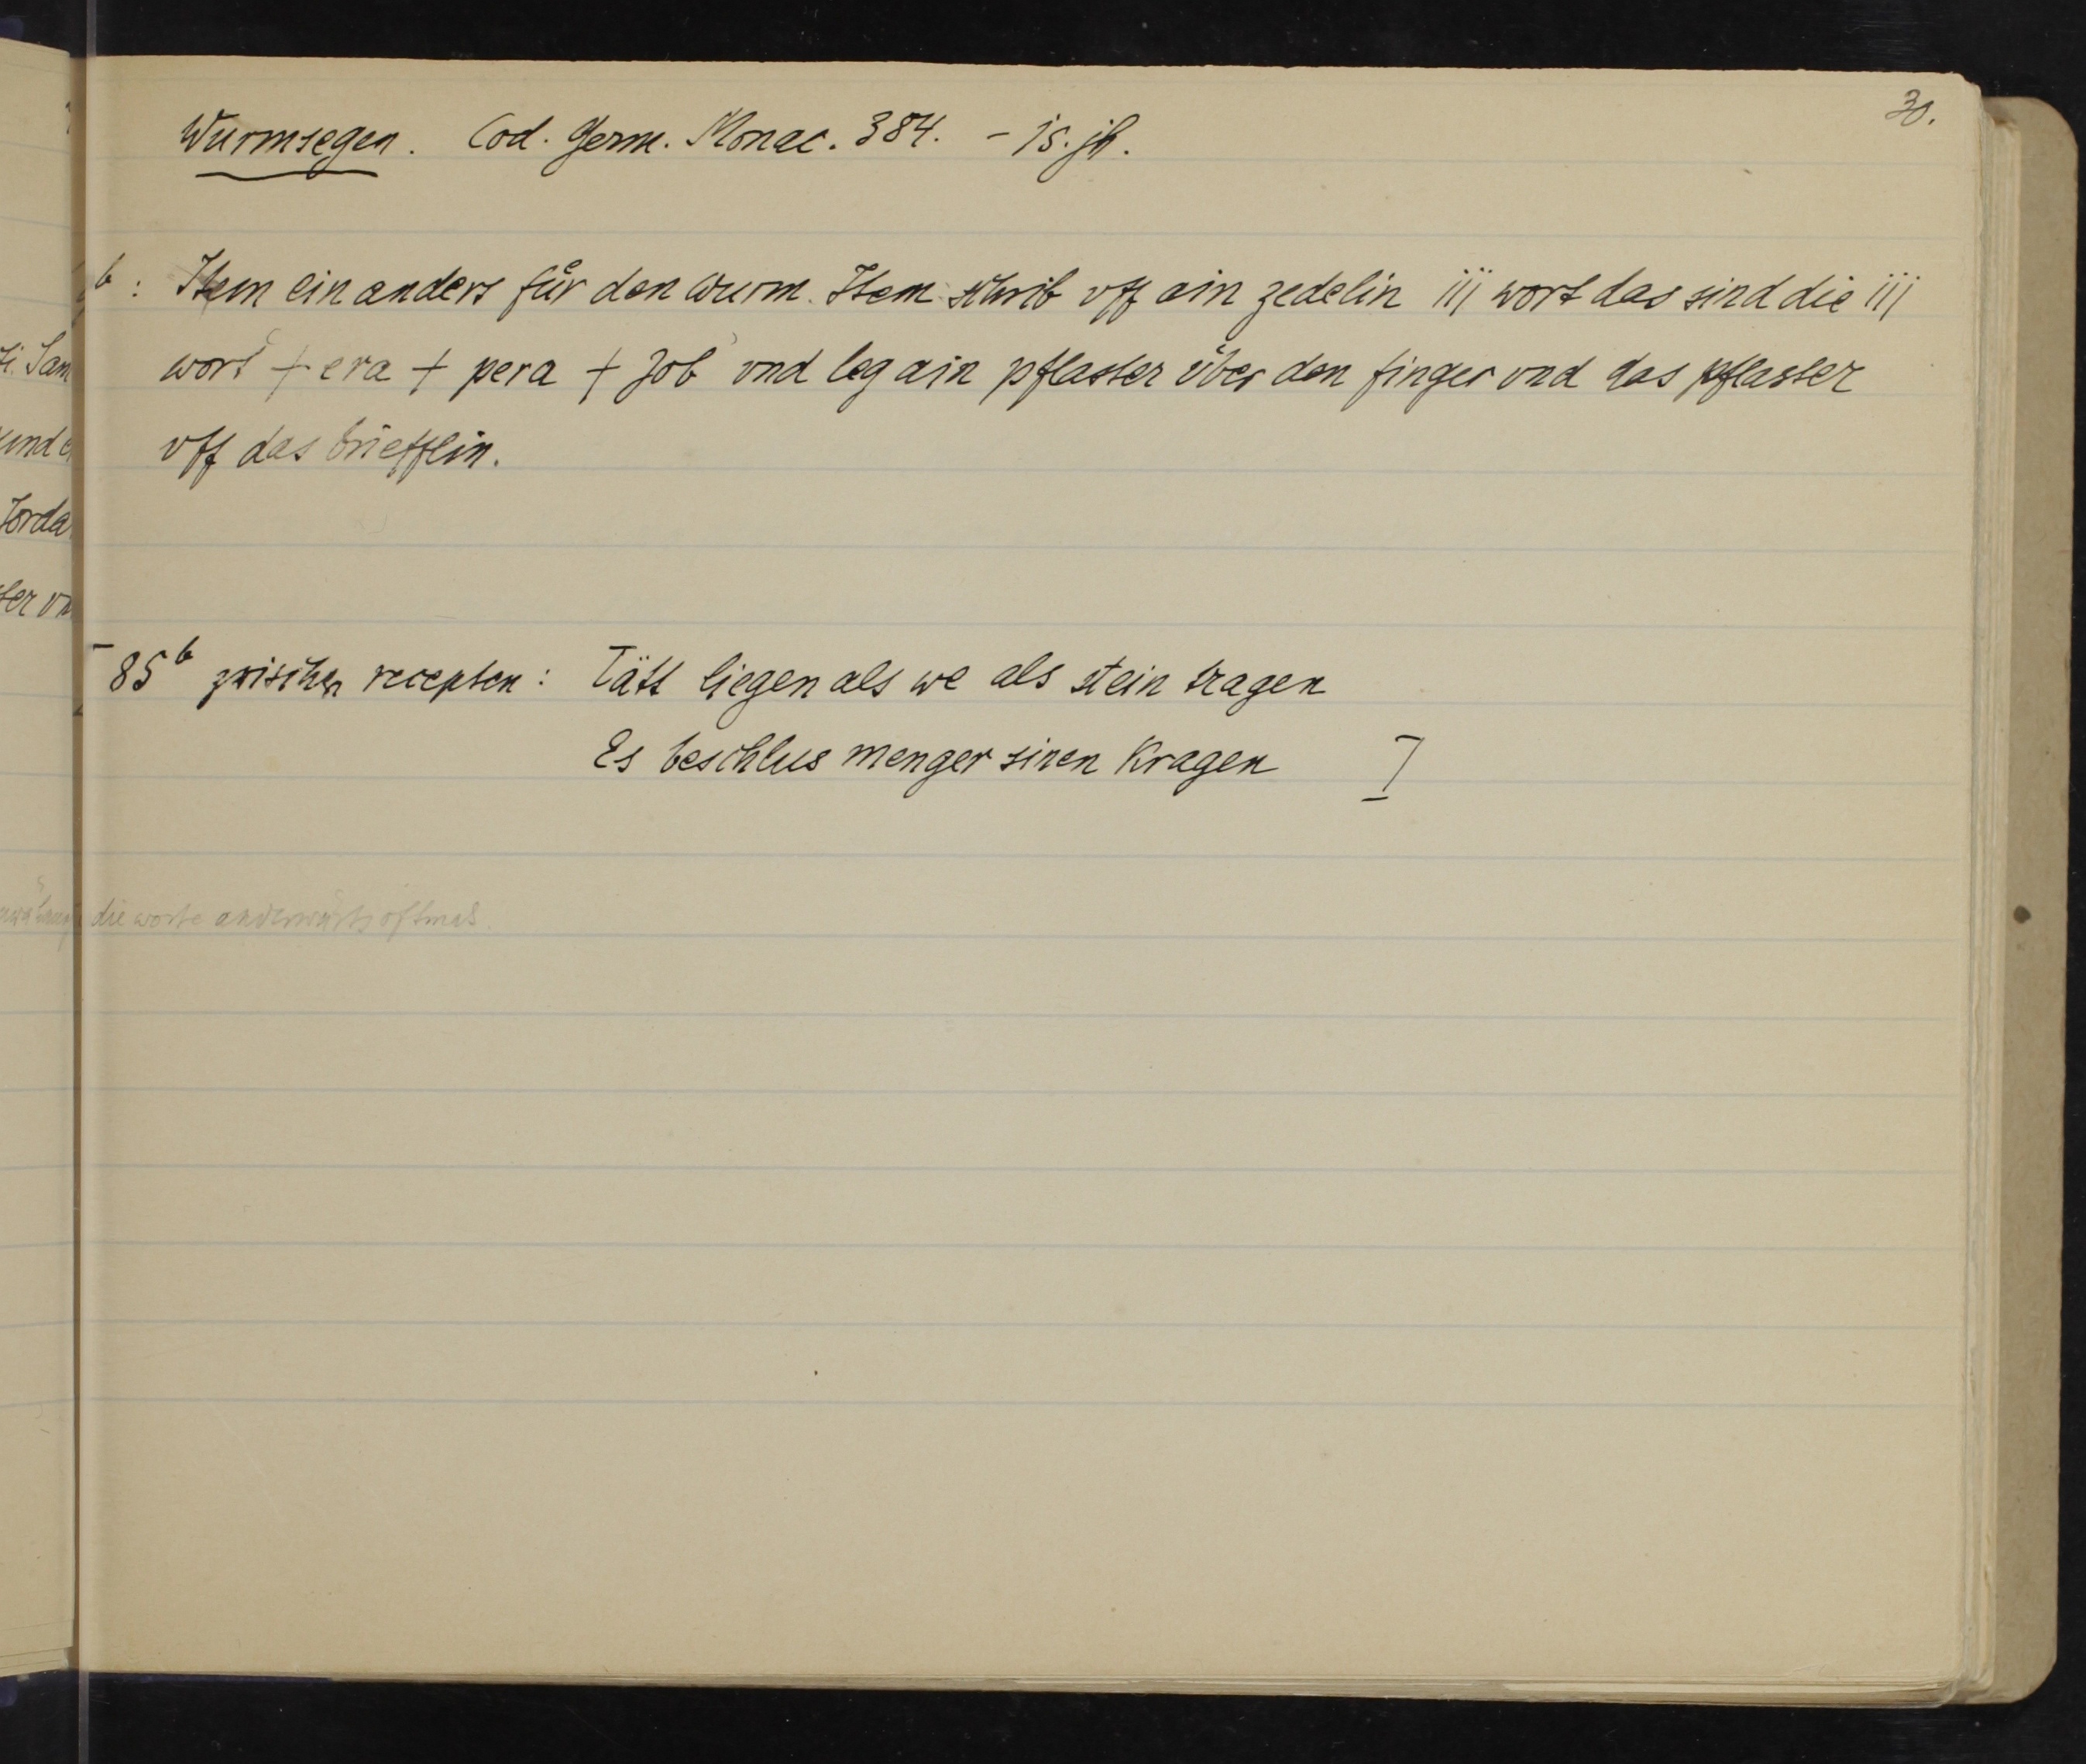 30.
Wurmsegen. Cod. Germ. Monac. 384. – 15. jh.
b: Item ein anders fůr den wurm. Item schrib vff ain zedelin iij wort das sind die iij
wort + era + pera + Job vnd leg ain pflaster über den finger vnd das pflaster
vff das briefflin.
85b zwischen recepten: Tätt liegen als we als stein tragen
Es beschlus menger sinen Kragen ]
die worte anderwärts oftmals.
ti. Sam
und e
Jorda
ter vn